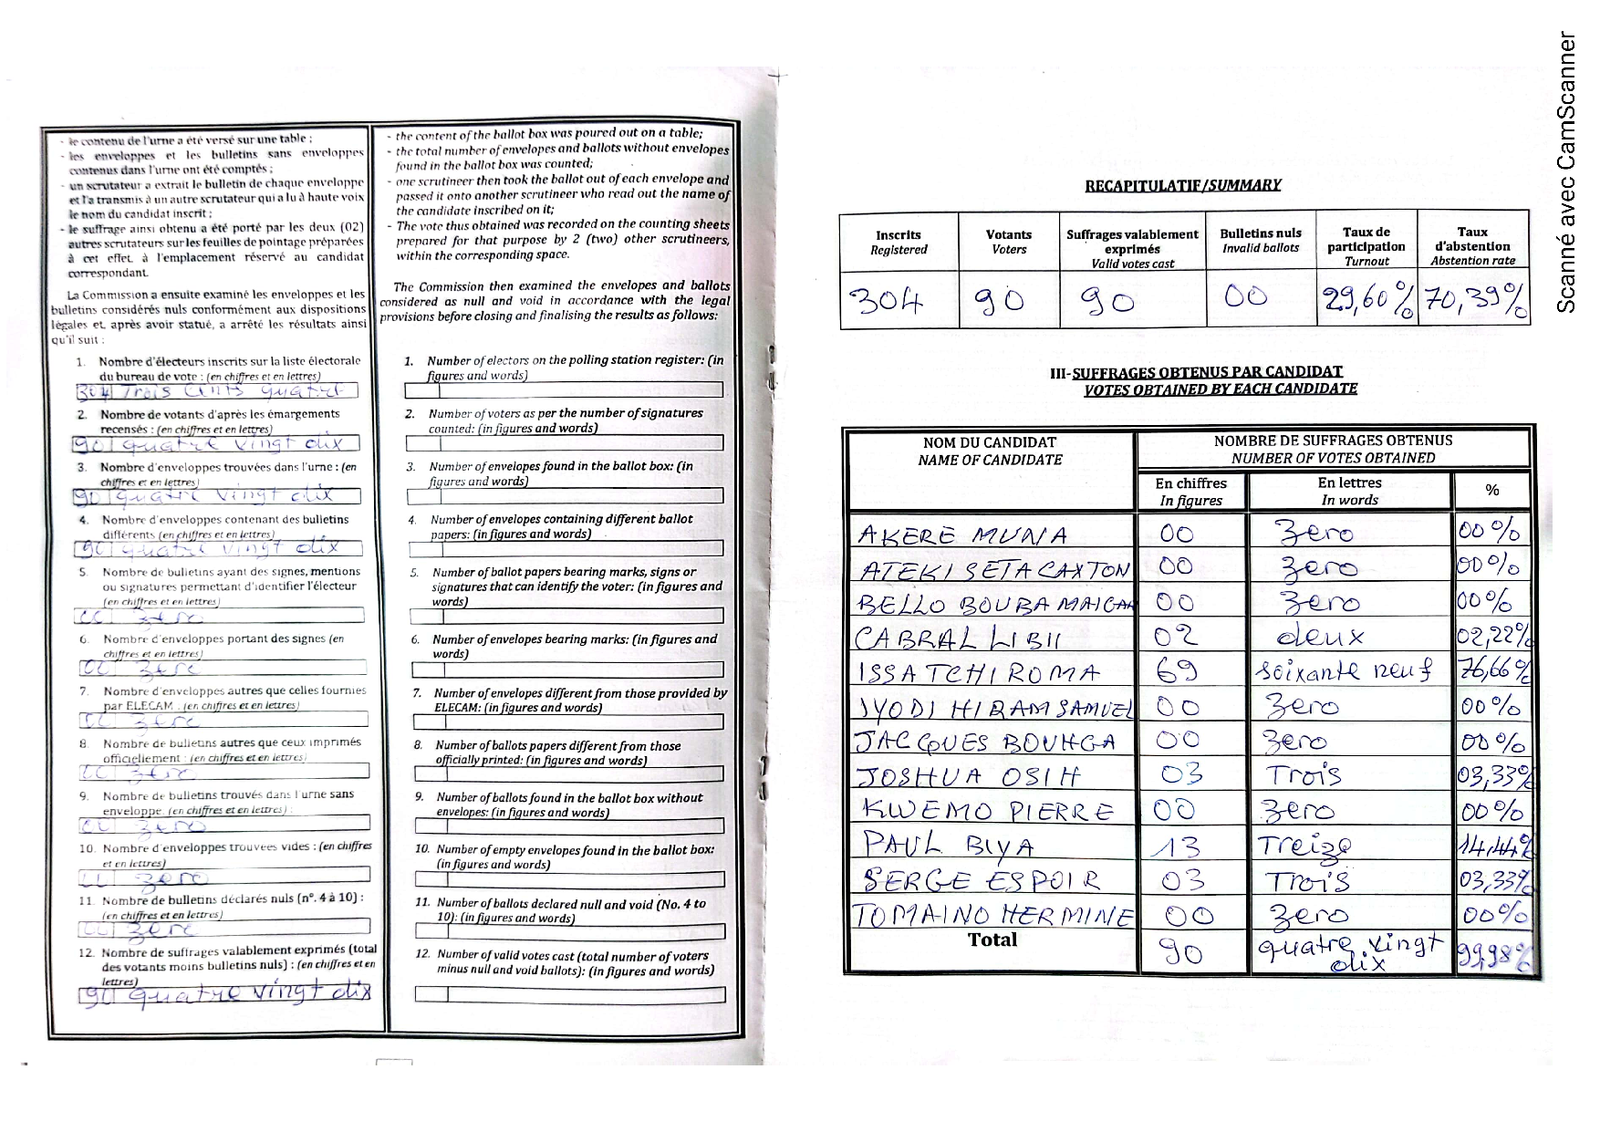 - le contenu de l'urne a été versé sur une table ;
- les enveloppes et les bulletins sans enveloppes
contenus dans l'urne ont été comptés ;
- un scrutateur a extrait le bulletin de chaque enveloppe
et l'a transmis à un autre scrutateur qui a lu à haute voix
le nom du candidat inscrit ;
- le suffrage ainsi obtenu a été porté par les deux (02)
autres scrutateurs sur les feuilles de pointage préparées
à cet effet, à l'emplacement réservé au candidat
correspondant.
La Commission a ensuite examiné les enveloppes et les
bulletins considérés nuls conformément aux dispositions
légales et, après avoir statué, a arrêté les résultats ainsi
qu'il suit :
1. Nombre d'électeurs inscrits sur la liste électorale
du bureau de vote : (en chiffres et en lettres)
304 Trois cents quatre
2. Nombre de votants d'après les émargements
recensés : (en chiffres et en lettres)
90 quatre vingt dix
3. Nombre d'enveloppes trouvées dans l'urne : (en
chiffres et en lettres)
90 quatre vingt dix
4. Nombre d'enveloppes contenant des bulletins
différents (en chiffres et en lettres)
90 quatre vingt dix
5. Nombre de bulletins ayant des signes, mentions
ou signatures permettant d'identifier l'électeur
(en chiffres et en lettres)
00 zero
6. Nombre d'enveloppes portant des signes (en
chiffres et en lettres)
00 zero
7. Nombre d'enveloppes autres que celles fournies
par ELECAM : (en chiffres et en lettres)
00 zero
8. Nombre de bulletins autres que ceux imprimés
officiellement : (en chiffres et en lettres)
00 zero
9. Nombre de bulletins trouvés dans l'urne sans
enveloppe: (en chiffres et en lettres) :
00 zero
10. Nombre d'enveloppes trouvées vides : (en chiffres
et en lettres)
00 zero
11. Nombre de bulletins déclarés nuls (n°. 4 à 10) :
(en chiffres et en lettres)
00 zero
12. Nombre de suffrages valablement exprimés (total
des votants moins bulletins nuls) : (en chiffres et en
lettres)
90 quatre vingt dix
- the content of the ballot box was poured out on a table;
- the total number of envelopes and ballots without envelopes
found in the ballot box was counted;
- one scrutineer then took the ballot out of each envelope and
passed it onto another scrutineer who read out the name of
the candidate inscribed on it;
- The vote thus obtained was recorded on the counting sheets
prepared for that purpose by 2 (two) other scrutineers,
within the corresponding space.
The Commission then examined the envelopes and ballots
considered as null and void in accordance with the legal
provisions before closing and finalising the results as follows:
1. Number of electors on the polling station register: (in
figures and words)
2. Number of voters as per the number of signatures
counted: (in figures and words)
3. Number of envelopes found in the ballot box: (in
figures and words)
4. Number of envelopes containing different ballot
papers: (in figures and words)
5. Number of ballot papers bearing marks, signs or
signatures that can identify the voter: (in figures and
words)
6. Number of envelopes bearing marks: (in figures and
words)
7. Number of envelopes different from those provided by
ELECAM: (in figures and words)
8. Number of ballots papers different from those
officially printed: (in figures and words)
9. Number of ballots found in the ballot box without
envelopes: (in figures and words)
10. Number of empty envelopes found in the ballot box:
(in figures and words)
11. Number of ballots declared null and void (No. 4 to
10): (in figures and words)
12. Number of valid votes cast (total number of voters
minus null and void ballots): (in figures and words)
RECAPITULATIF/SUMMARY
Inscrits Votants Suffrages valablement Bulletins nuls Taux de Taux
Registered Voters exprimés Invalid ballots participation d'abstention
Valid votes cast Turnout Abstention rate
304 90 90 00 29,60% 70,39%
III-SUFFRAGES OBTENUS PAR CANDIDAT
VOTES OBTAINED BY EACH CANDIDATE
NOM DU CANDIDAT NOMBRE DE SUFFRAGES OBTENUS
NAME OF CANDIDATE NUMBER OF VOTES OBTAINED
En chiffres En lettres %
In figures In words
AKERE MUNA 00 Zero 00%
ATEKI SETA CAXTON 00 Zero 00%
BELLO BOUBA MAIGAR 00 Zero 00%
CABRAL LIBII 02 deux 02,22%
ISSA TCHIROMA 69 soixante neuf 76,66%
JYODI HIRAM SAMUEL 00 Zero 00%
JACQUES BOUHGA 00 Zero 00%
JOSHUA OSIH 03 Trois 03,33%
KWEMO PIERRE 00 Zero 00%
PAUL BIYA 13 Treize 14,44%
SERGE ESPOIR 03 Trois 03,33%
TOMAINO HERMINE 00 Zero 00%
Total 90 quatre vingt dix 99,98%
Scanné avec CamScanner